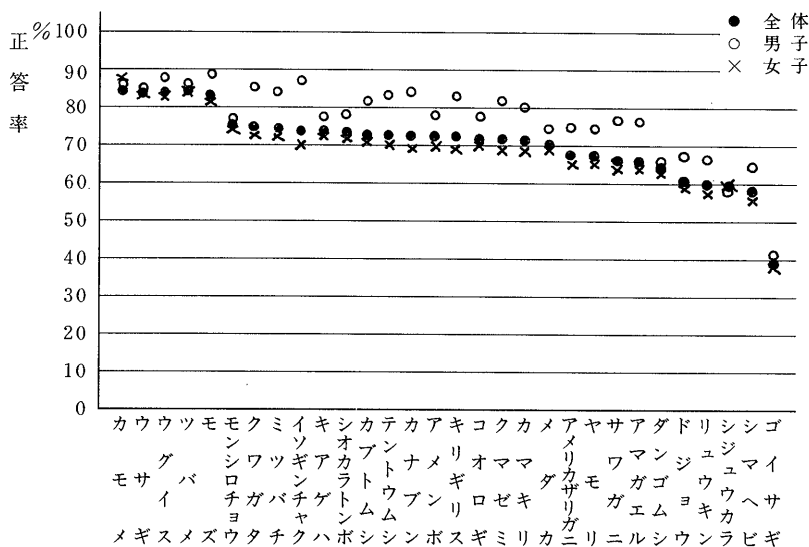 正答率
%
100
90
80
70
60
50
40
30
20
10
0
● 全体
○ 男子
× 女子
カモメ
ウサギ
ウグイス
ツバメ
モズ
モンシロチョウ
クワガタ
ミツバチ
イソギンチャク
キアゲハ
シオカラトンボ
カブトムシ
テントウムシ
カナブン
アメンボ
キリギリス
コオロギ
クマゼミ
カマキリ
メダカ
アメリカザリガニ
ヤモリ
サワガニ
アマガエル
ダンゴムシ
ドジョウ
リュウキン
シジュウカラ
シマヘビ
ゴイサギ